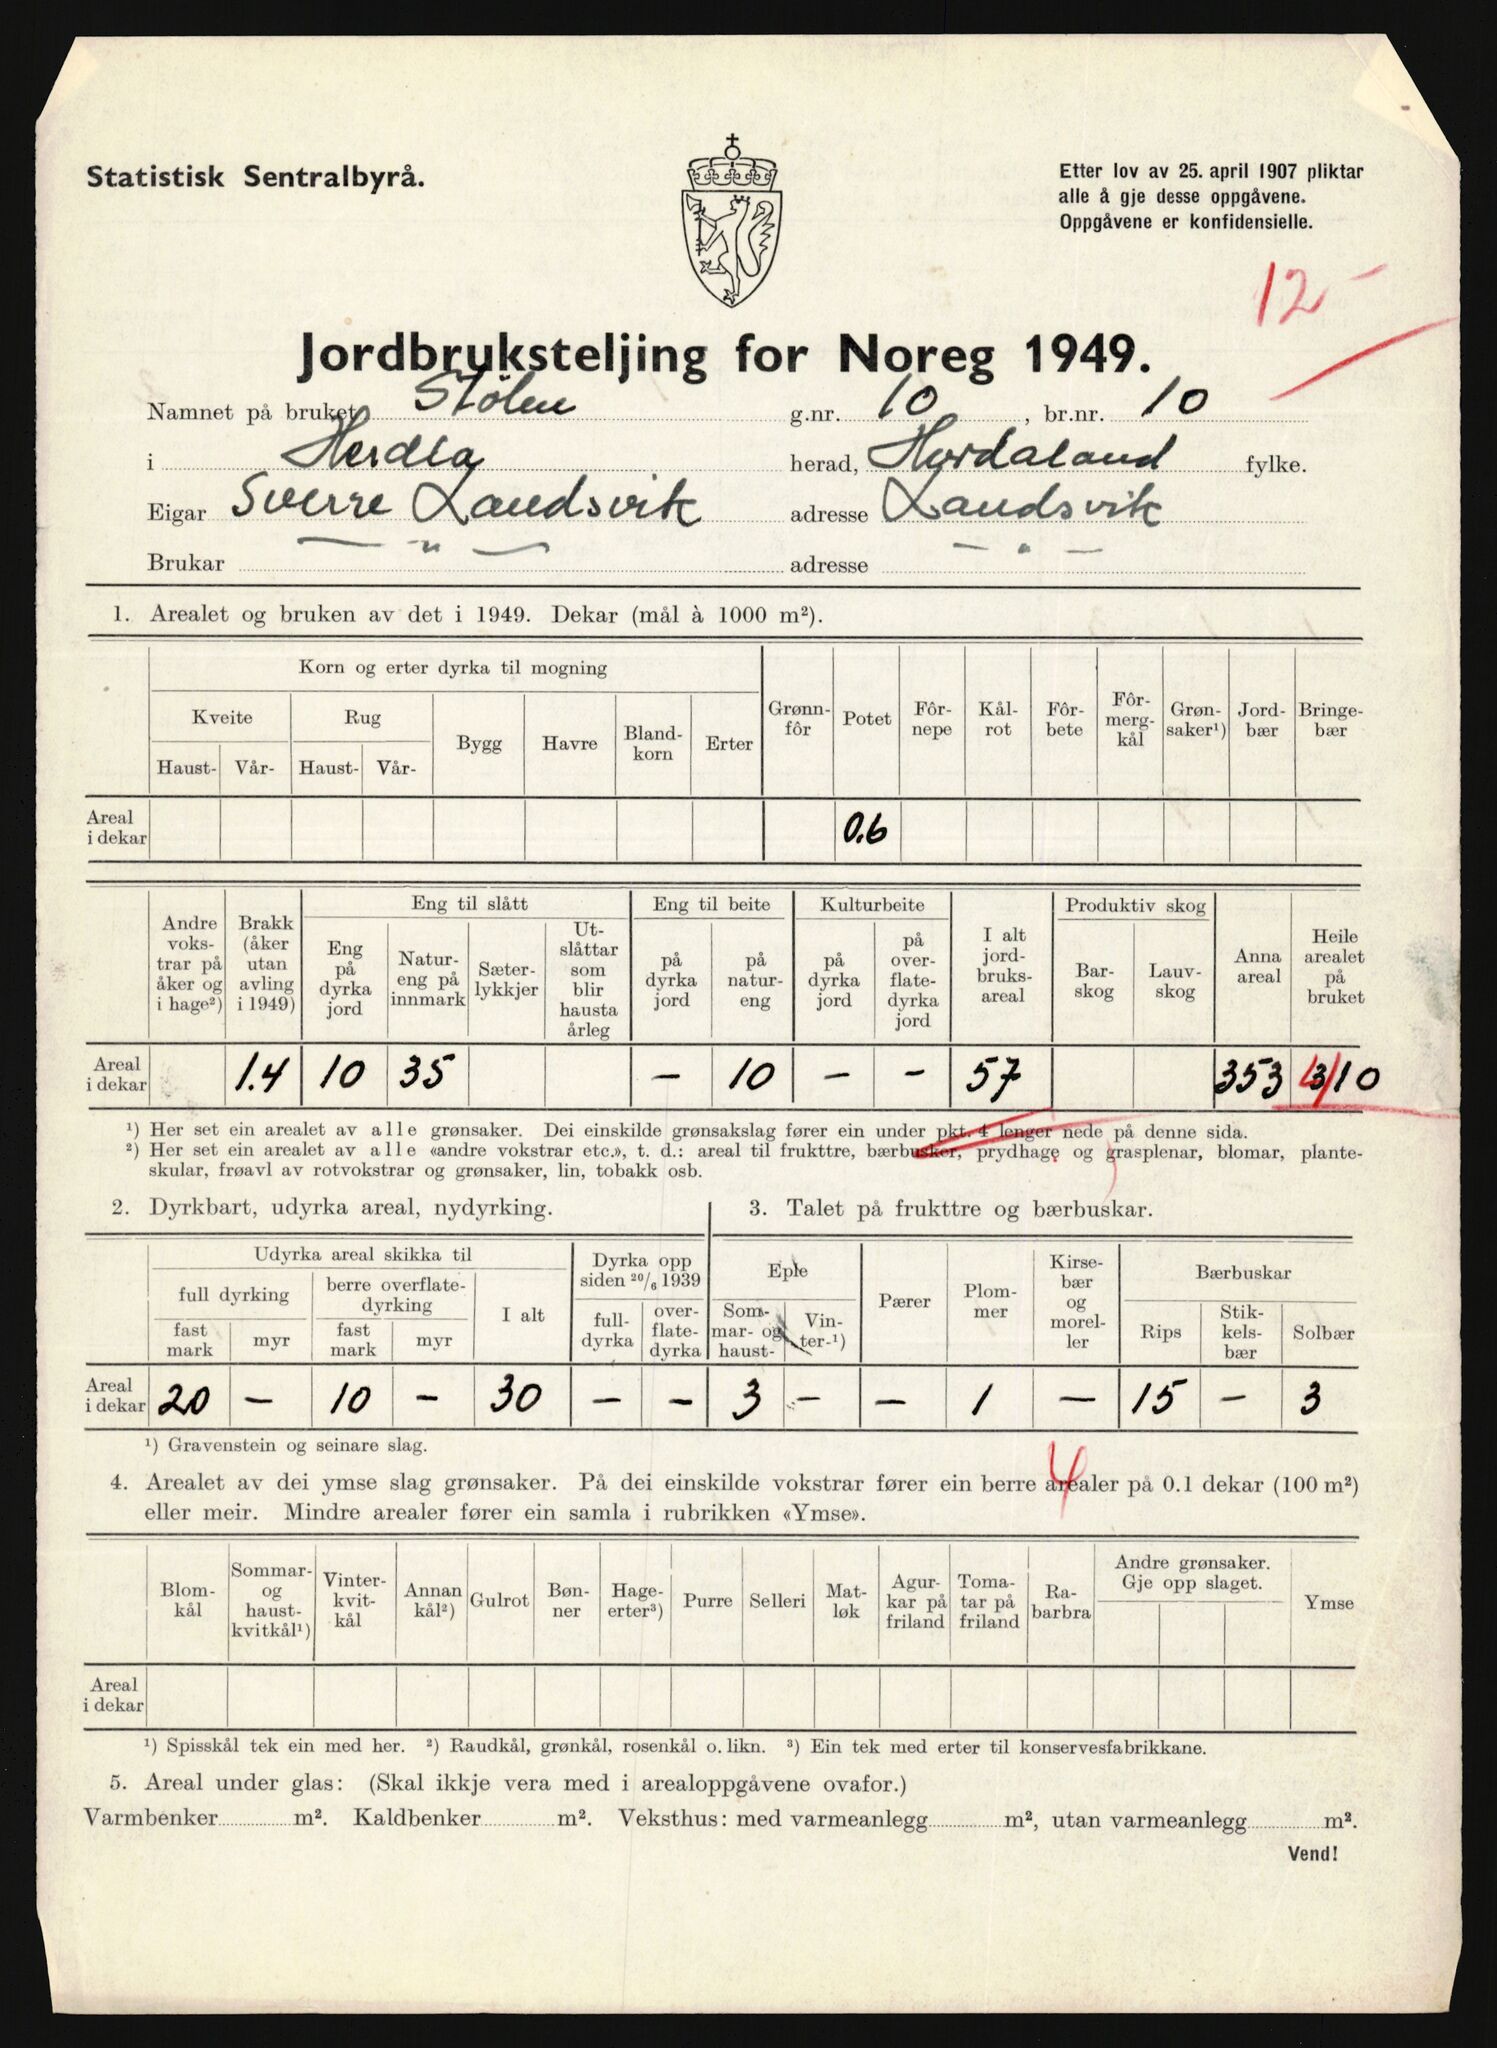 Statistisk Sentralbyrå.
Etter lov av 25. april 1907 pliktar
alle å gje desse oppgåvene.
Oppgåvene er konfidensielle.
12-
Jordbruksteljing for Noreg 1949.
Namnet på bruket Stölen g.nr. 10, br.nr. 10
i Herdla herad, Hordaland fylke.
Eigar Sverre Landsvik adresse Landsvik
Brukar — " — adresse — " —
1. Arealet og bruken av det i 1949. Dekar (mål à 1000 m²).
Korn og erter dyrka til mogning
Kveite Rug Bygg Havre Bland-korn Erter Grønn-fôr Potet Fôr-nepe Kål-rot Fôr-bete Fôr-merg-kål Grøn-saker¹) Jord-bær Bringe-bær
Haust- Vår- Haust- Vår-
Areal i dekar 0.6
Eng til slått Eng til beite Kulturbeite Produktiv skog
Andre voks-trar på åker og i hage²) Brakk (åker utan avling i 1949) Eng på dyrka jord Natur-eng på innmark Sæter-lykkjer Ut-slåttar som blir hausta årleg på dyrka jord på natur-eng på dyrka jord på over-flate-dyrka jord I alt jord-bruks-areal Bar-skog Lauv-skog Anna areal Heile arealet på bruket
Areal i dekar 1.4 10 35 — 10 — — 57 353
¹) Her set ein arealet av alle grønsaker. Dei einskilde grønsakslag fører ein under pkt. 4 lenger nede på denne sida.
²) Her set ein arealet av alle «andre vokstrar etc.», t. d.: areal til frukttre, bærbusker, prydhage og grasplenar, blomar, plante-
skular, frøavl av rotvokstrar og grønsaker, lin, tobakk osb.
2. Dyrkbart, udyrka areal, nydyrking. 3. Talet på frukttre og bærbuskar.
Udyrka areal skikka til Dyrka opp siden 20/6 1939 Eple Pærer Plom-mer Kirse-bær og morel-ler Bærbuskar
full dyrking berre overflate-dyrking I alt full-dyrka over-flate-dyrka Som-mar- og haust- Vin-ter-¹) Rips Stik-kels-bær Solbær
fast mark myr fast mark myr
Areal i dekar 20 — 10 — 30 — — 3 — — 1 — 15 — 3
¹) Gravenstein og seinare slag.
4
4. Arealet av dei ymse slag grønsaker. På dei einskilde vokstrar fører ein berre arealer på 0.1 dekar (100 m²)
eller meir. Mindre arealer fører ein samla i rubrikken «Ymse».
Blom-kål Sommar- og haust-kvitkål¹) Vinter-kvit-kål Annan kål²) Gulrot Bøn-ner Hage-erter³) Purre Selleri Mat-løk Agur-kar på friland Toma-tar på friland Ra-barbra Andre grønsaker. Gje opp slaget. Ymse
Areal i dekar
¹) Spisskål tek ein med her. ²) Raudkål, grønkål, rosenkål o. likn. ³) Ein tek med erter til konservesfabrikkane.
5. Areal under glas: (Skal ikkje vera med i arealoppgåvene ovafor.)
Varmbenker m². Kaldbenker m². Veksthus: med varmeanlegg m², utan varmeanlegg m².
Vend!